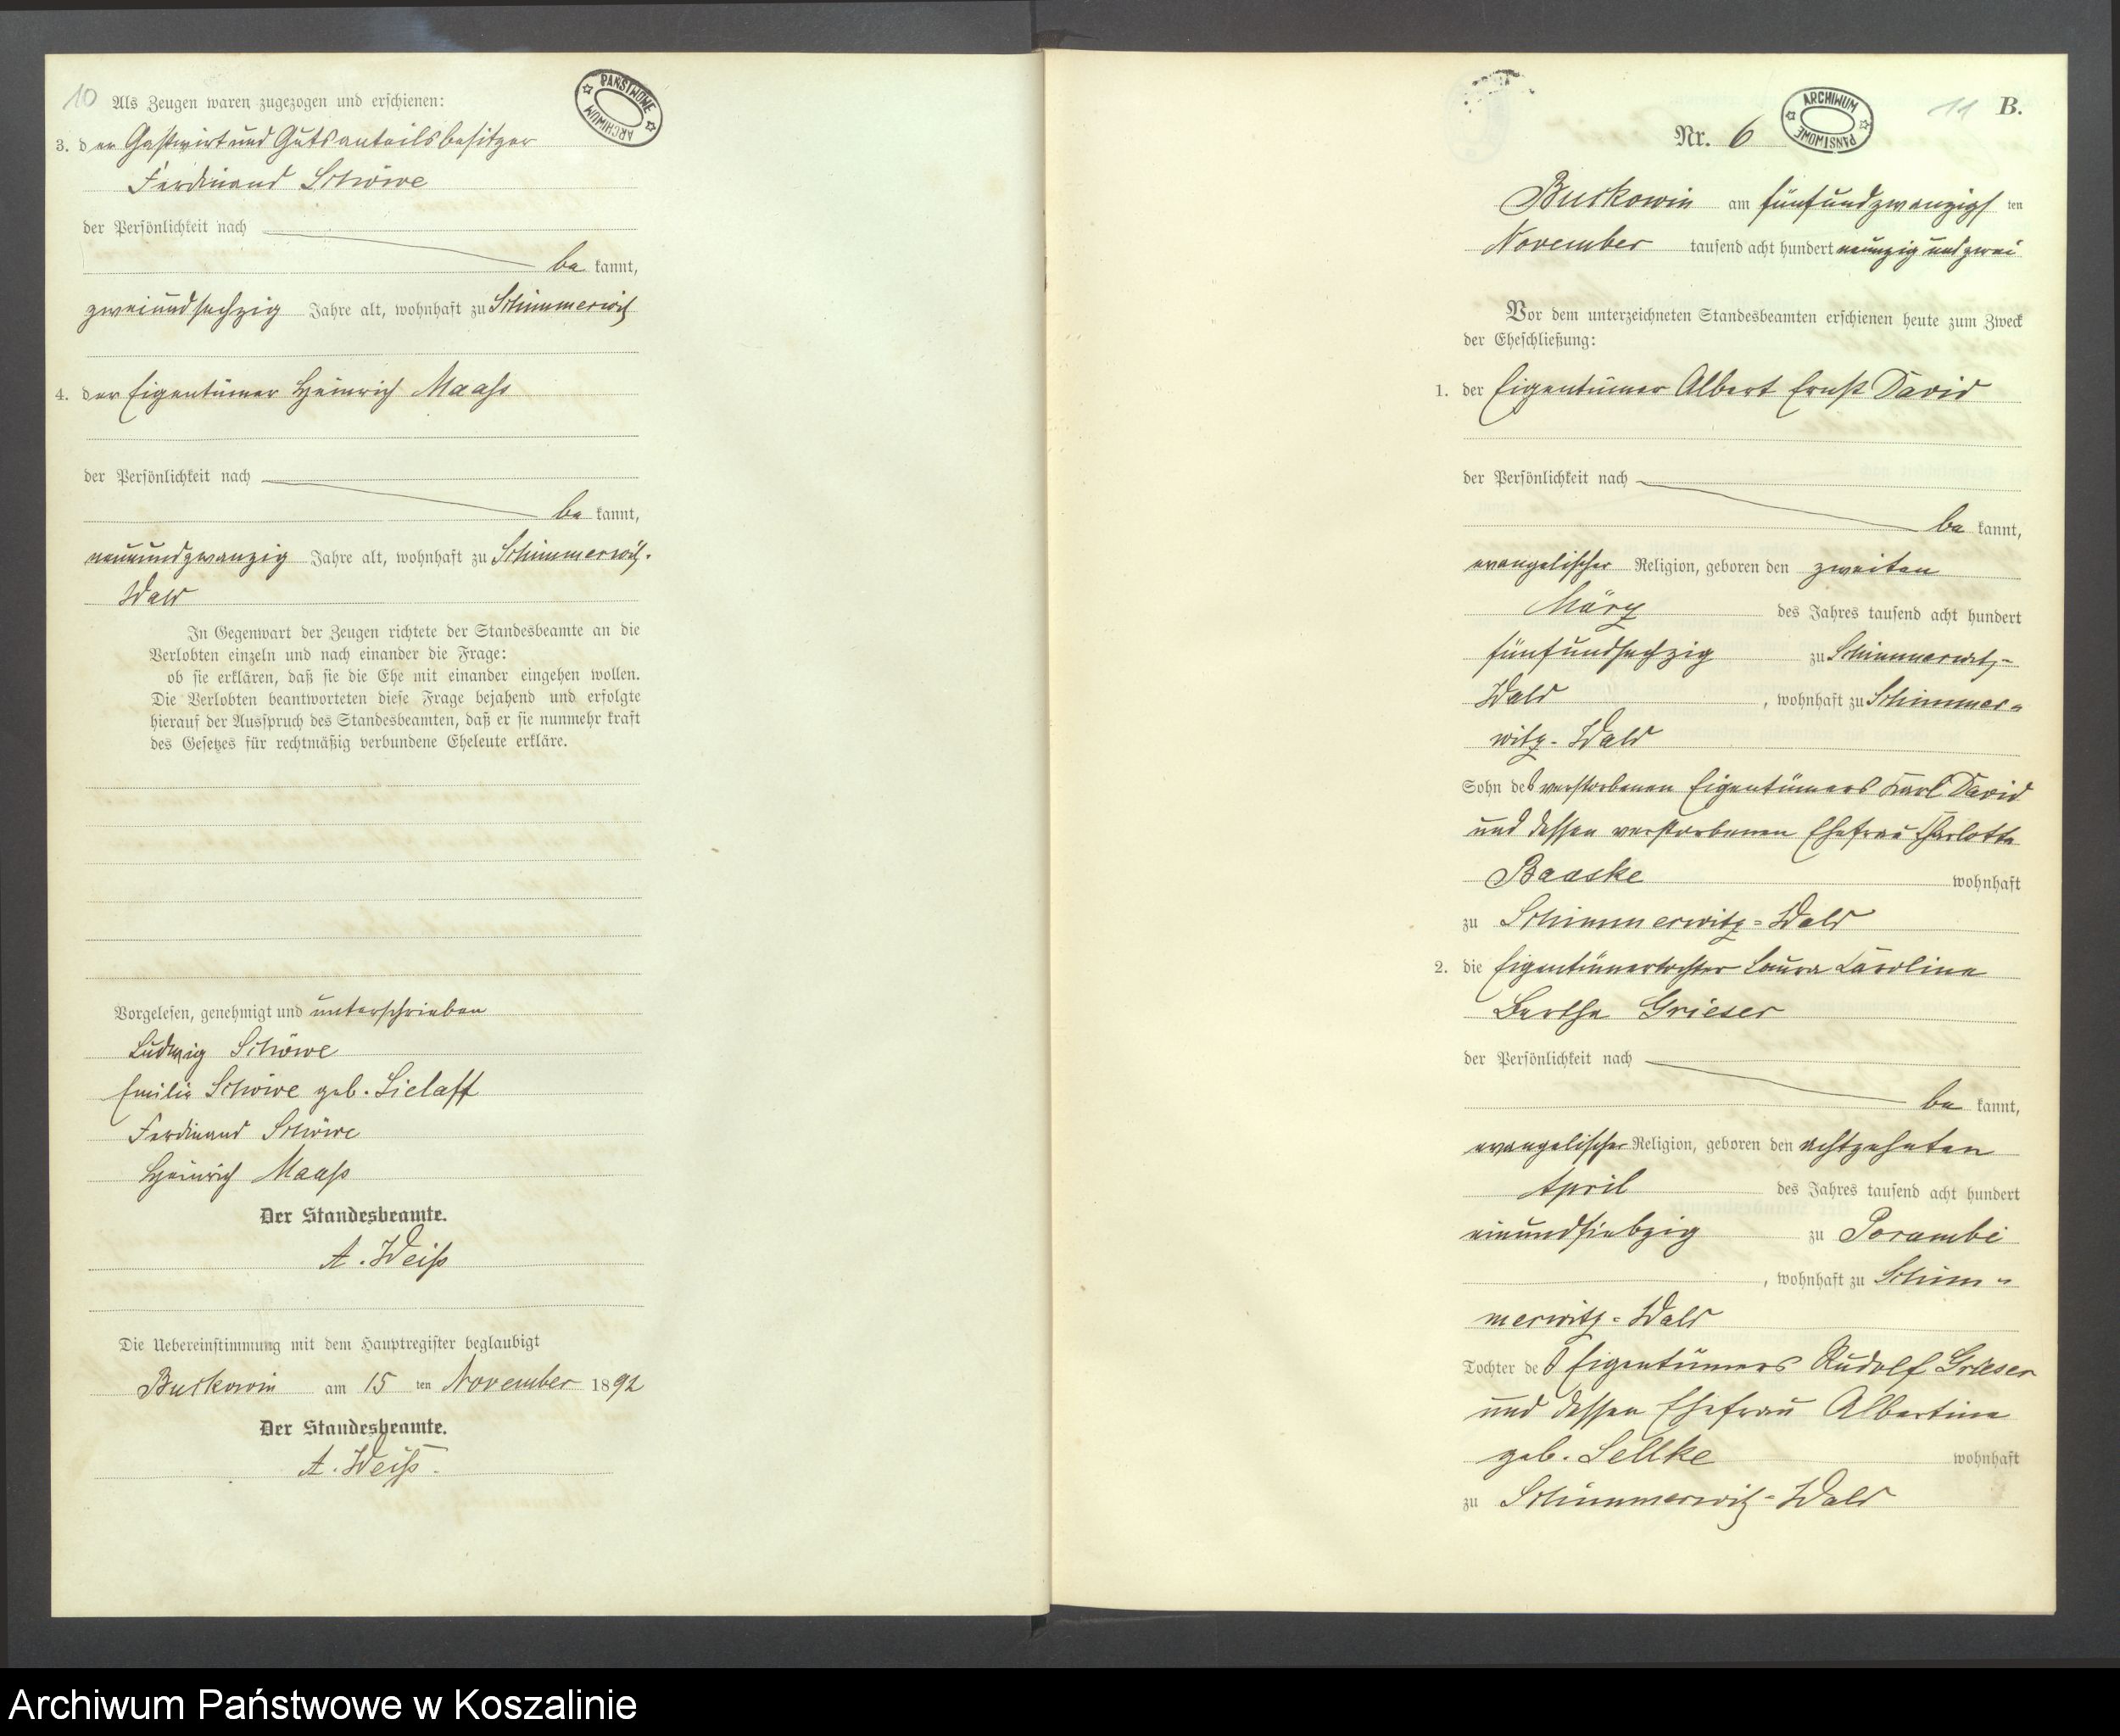 10 Als Zeugen waren zugezogen und erschienen:
PAŃSTWOWE ARCHIWUM
3. der Gastwirt und Gutsanteilsbesitzer
Ferdinand Schöwe
der Persönlichkeit nach
be kannt,
zweiundsechzig Jahre alt, wohnhaft zu Schimmerwitz
4. der Eigentümer Heinrich Maaß
der Persönlichkeit nach
be kannt,
neunundzwanzig Jahre alt, wohnhaft zu Schimmerwitz-
Wald
In Gegenwart der Zeugen richtete der Standesbeamte an die
Verlobten einzeln und nach einander die Frage:
ob sie erklären, daß sie die Ehe mit einander eingehen wollen.
Die Verlobten beantworteten diese Frage bejahend und erfolgte
hierauf der Ausspruch des Standesbeamten, daß er sie nunmehr kraft
des Gesetzes für rechtmäßig verbundene Eheleute erkläre.
Vorgelesen, genehmigt und unterschrieben
Ludwig Schöwe
Emilie Schöwe geb. Sielaff
Ferdinand Schöwe
Heinrich Maaß
Der Standesbeamte.
A. Weiß
Die Uebereinstimmung mit dem Hauptregister beglaubigt
Buckowin am 15 ten November 1892
Der Standesbeamte.
A. Weiß.
11 B.
Nr. 6
ARCHIWUM PAŃSTWOWE
Buckowin am fünfundzwanzigs ten
November tausend acht hundert neunzig und zwei
Vor dem unterzeichneten Standesbeamten erschienen heute zum Zweck
der Eheschließung:
1. der Eigentümer Albert Ernst David
der Persönlichkeit nach
be kannt,
evangelischer Religion, geboren den zweiten
März des Jahres tausend acht hundert
fünfundsechzig zu Schimmerwitz-
Wald, wohnhaft zu Schimmer-
witz-Wald
Sohn des verstorbenen Eigentümers Karl David
und dessen verstorbenen Ehefrau Charlotte
Baaske wohnhaft
zu Schimmerwitz-Wald
2. die Eigentümertochter Laura Caroline
Bertha Grieser
der Persönlichkeit nach
be kannt,
evangelischer Religion, geboren den achtzehnten
April des Jahres tausend acht hundert
einundsiebzig zu Porambi
, wohnhaft zu Schim-
merwitz-Wald
Tochter des Eigentümers Rudolf Grieser
und dessen Ehefrau Albertine
geb. Sellke wohnhaft
zu Schimmerwitz-Wald
Archiwum Państwowe w Koszalinie